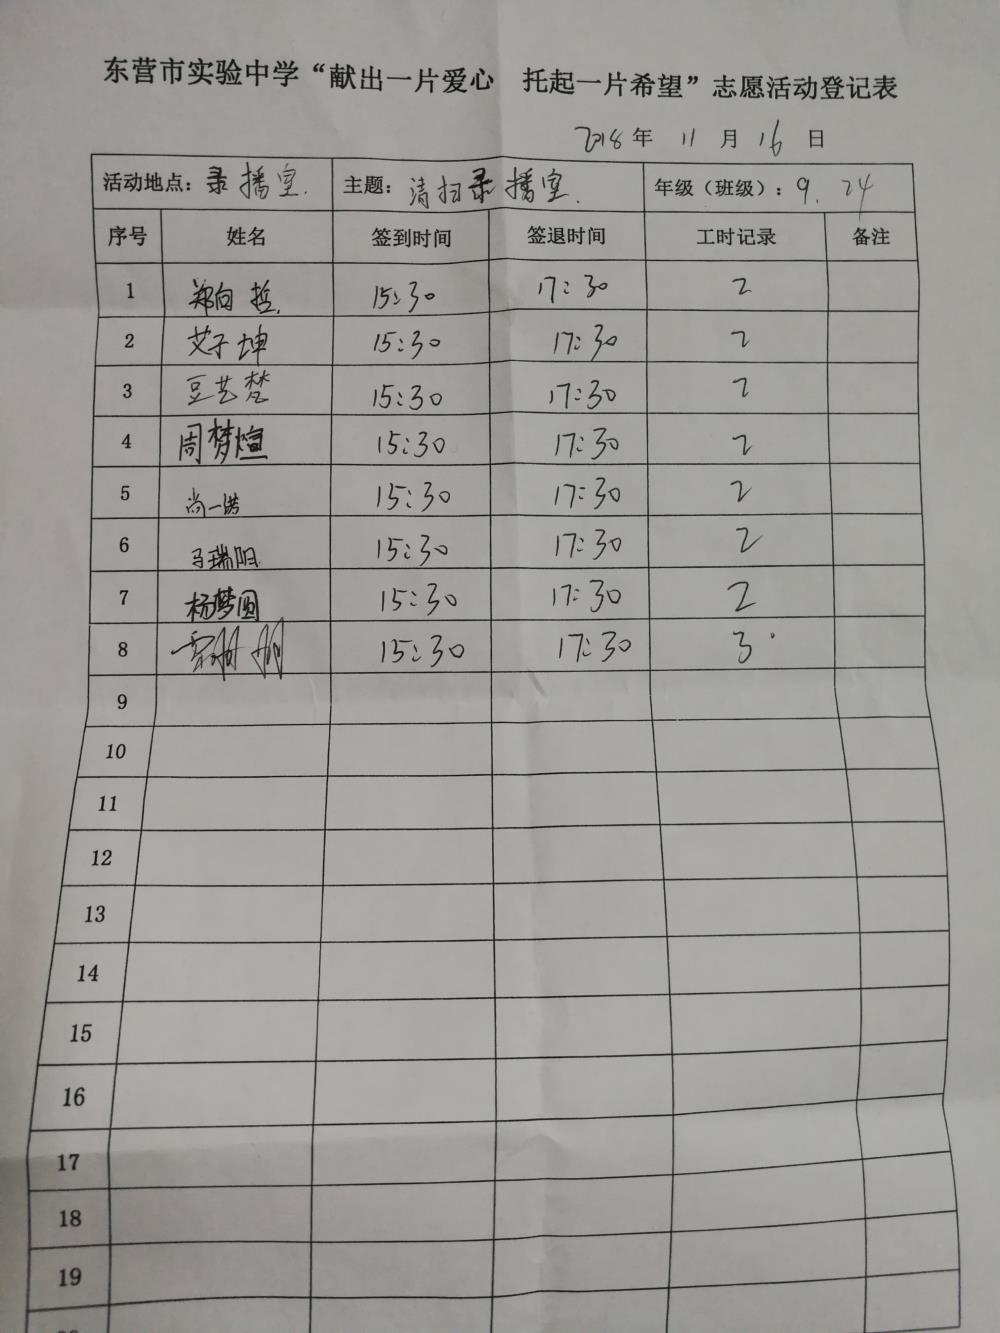 东营市实验中学“献出一片爱心 托起一片希望”志愿活动登记表
2018年 11 月 16 日
活动地点：录播室. 主题：清扫录播室. 年级（班级）：9.24
序号 姓名 签到时间 签退时间 工时记录 备注
1 郑向哲. 15:30 17:30 2
2 艾子坤 15:30 17:30 2
3 豆艺梵 15:30 17:30 2
4 周梦煊 15:30 17:30 2
5 尚一诺 15:30 17:30 2
6 马瑞阳 15:30 17:30 2
7 杨梦圆 15:30 17:30 2
8 15:30 17:30 3
9
10
11
12
13
14
15
16
17
18
19